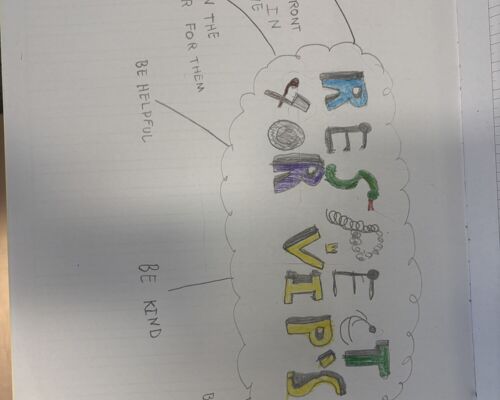 RESPECT
VIP'S
FRONT
IN
THE
FOR THEM
BE HELPFUL
BE KIND